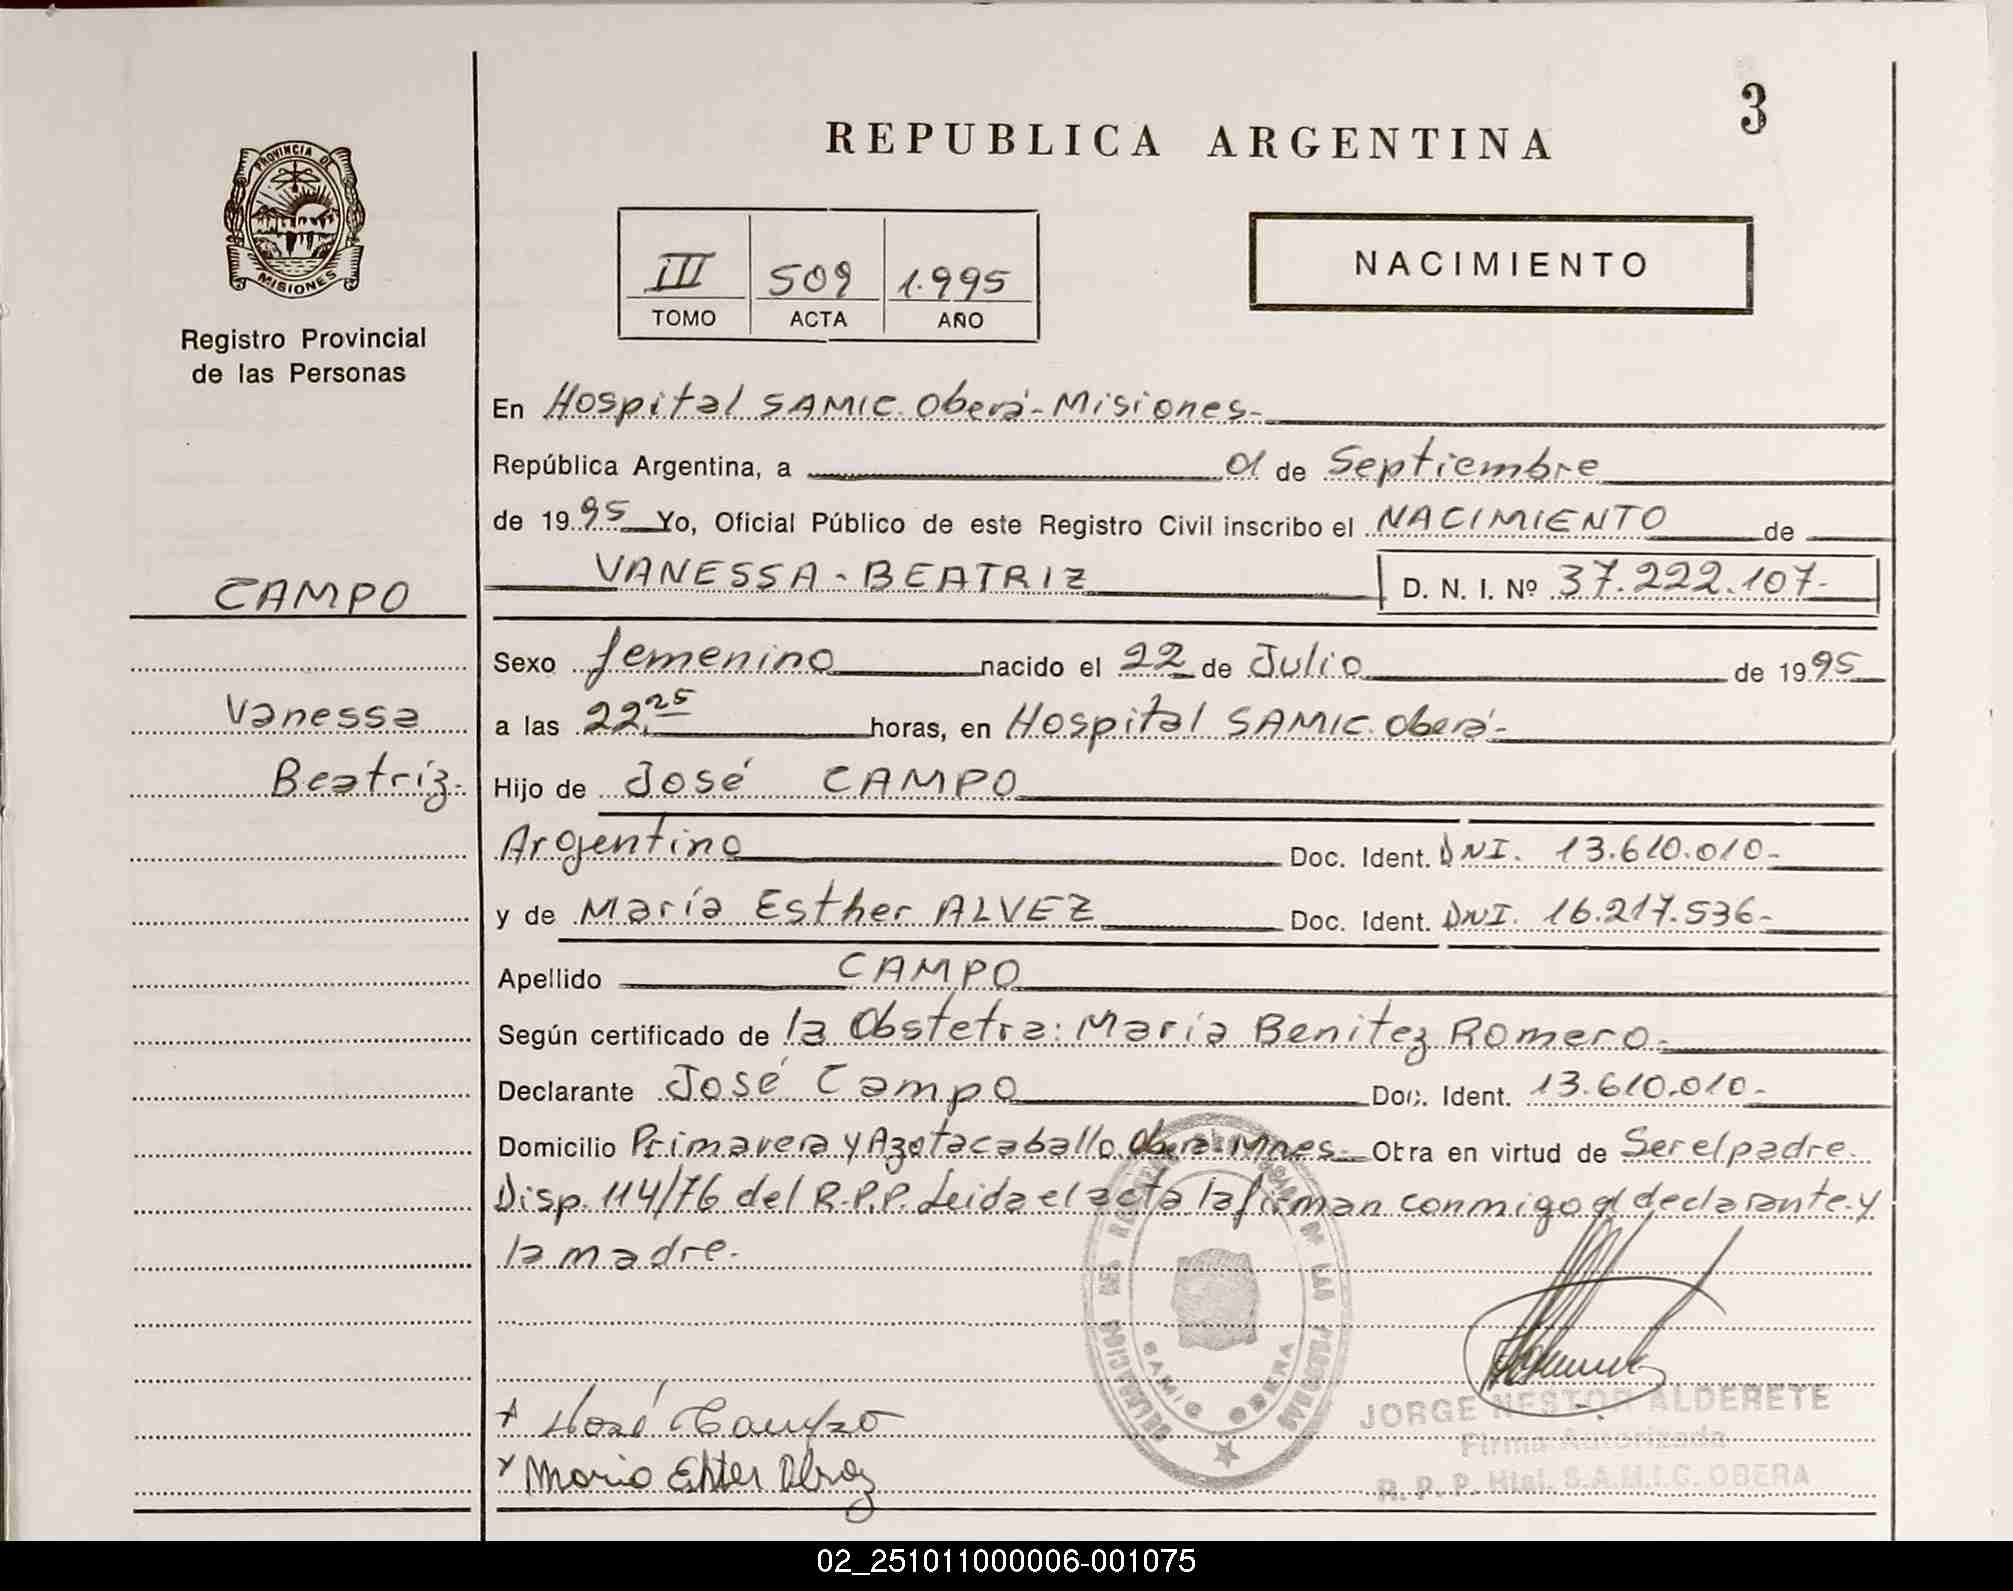 3
REPUBLICA ARGENTINA
PROVINCIA DE
MISIONES
Registro Provincial
de las Personas
III 509 1.995
TOMO ACTA AÑO
NACIMIENTO
En Hospital SAMIC. Oberá - Misiones-
República Argentina, a 01 de Septiembre
de 1995 Yo, Oficial Público de este Registro Civil inscribo el NACIMIENTO de
VANESSA - BEATRIZ D. N. I. Nº 37.222.107-
CAMPO
Sexo femenino nacido el 22 de Julio de 1995
Vanessa
a las 22,25 horas, en Hospital SAMIC. Oberá-
Beatríz-
Hijo de José CAMPO
Argentino Doc. Ident. DNI. 13.610.010-
y de María Esther ALVEZ Doc. Ident. DNI. 16.217.536-
Apellido CAMPO
Según certificado de la Obstetra: María Benitez Romero-
Declarante José Campo Doc. Ident. 13.610.010-
Domicilio Primavera y Azotacaballo Oberá Mnes- Obra en virtud de Ser el padre.
Disp. 114/76 del R.P.P. Leida el acta la firman conmigo el declarante y
la madre.
DE LAS PERSONAS
SAMIC OBERA
José Campo
JORGE NESTOR ALDERETE
Firma Autorizada
R. P. P. Htal. S.A.M.I.C. OBERA
02_251011000006-001075